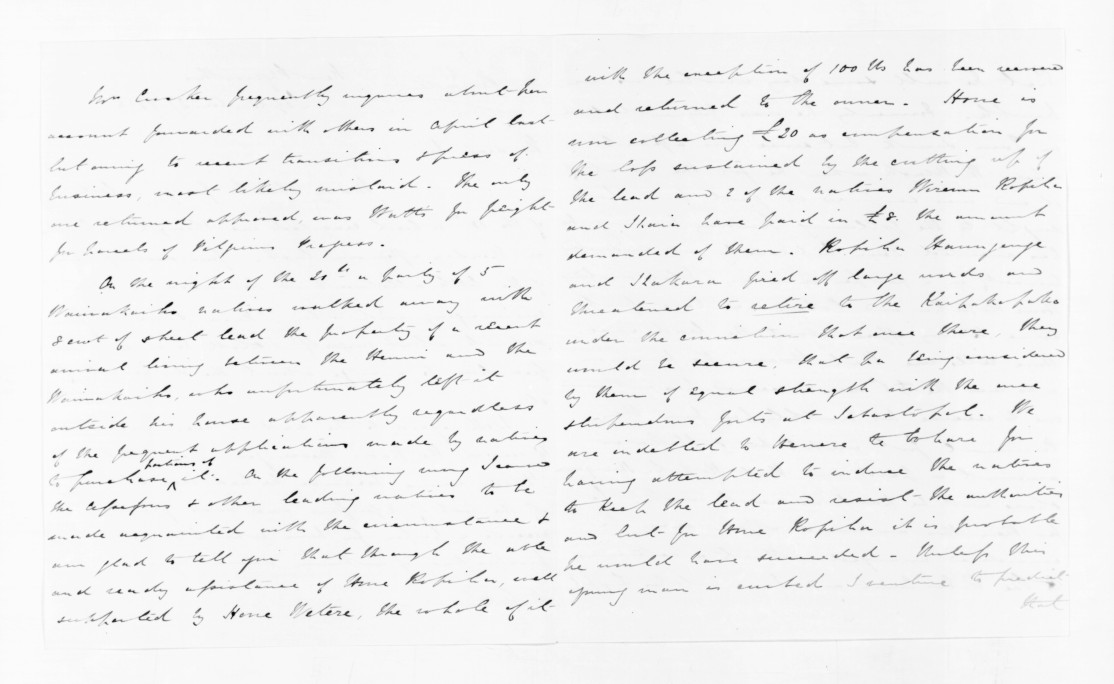 Mrs Croker frequently inquires about her
account forwarded with others in April last
but owing to recent transitions & press of
business, most likely mislaid. The only
one returned approved, was Watts for freight
for parcels of Pilgrims Progress.
On the night of the 20th a party of 5
natives walked away with
8 cwt of sheet lead the property of a recent
arrival living between the and the
who unfortunately left it
outside his house apparently regardless
of the frequent applications made by natives
to purchase portions of it. On the following morng I caused
the assessors & other leading natives to be
made acquainted with the circumstance &
am glad to tell you that through the able
and ready assistance of Hone Ropiha, well
supported by Hone Wetere, the whole of it
with the exception of 100 lbs has been recovered
and returned to the owner. Hone is
now collecting £20 as compensation for
the loss sustained by the cutting up of
the lead and 2 of the natives Wiremu Ropiha
and Ihaia have paid in £8 the amount
demanded of them. Ropiha
and fired off large words and
threatened to retire to the
under the conviction that once there, they
would be secure, that pa being considered
by them of equal strength with the once
stupendous forts at Sebastopol. We
are indebted to for
having attempted to induce the natives
to keep the lead and resist the authorities
and but for Hone Ropiha it is probable
he would have succeeded - Unless this
young man is curbed I venture to predict
that